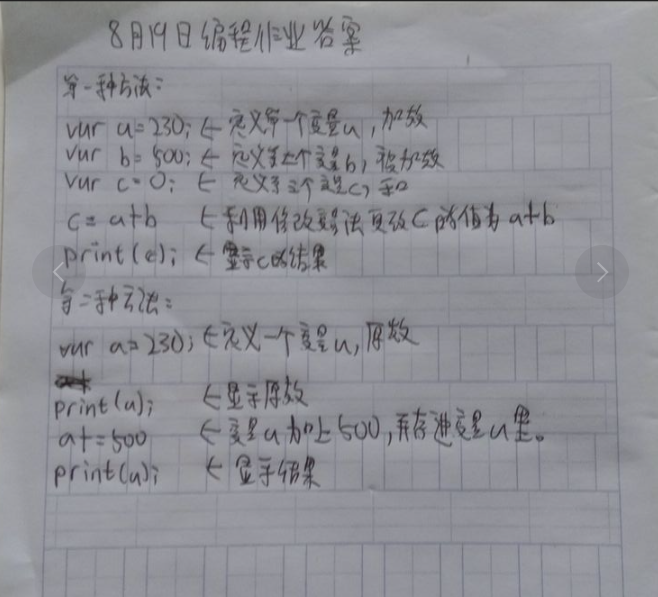 8月19日编程作业答案
第一种方法:
var a=230; ← 定义第一个变量a,加数
var b=500; ← 定义第二个变量b,被加数
var c=0; ← 定义第三个变量c,和
c=a+b ← 利用修改变量法更改C的值为a+b
print(c); ← 显示c的结果
第二种方法:
var a=230; ← 定义一个变量a,原数
print(a); ← 显示原数
a+=500 ← 变量a加上500,再存进变量a里。
print(a); ← 显示结果